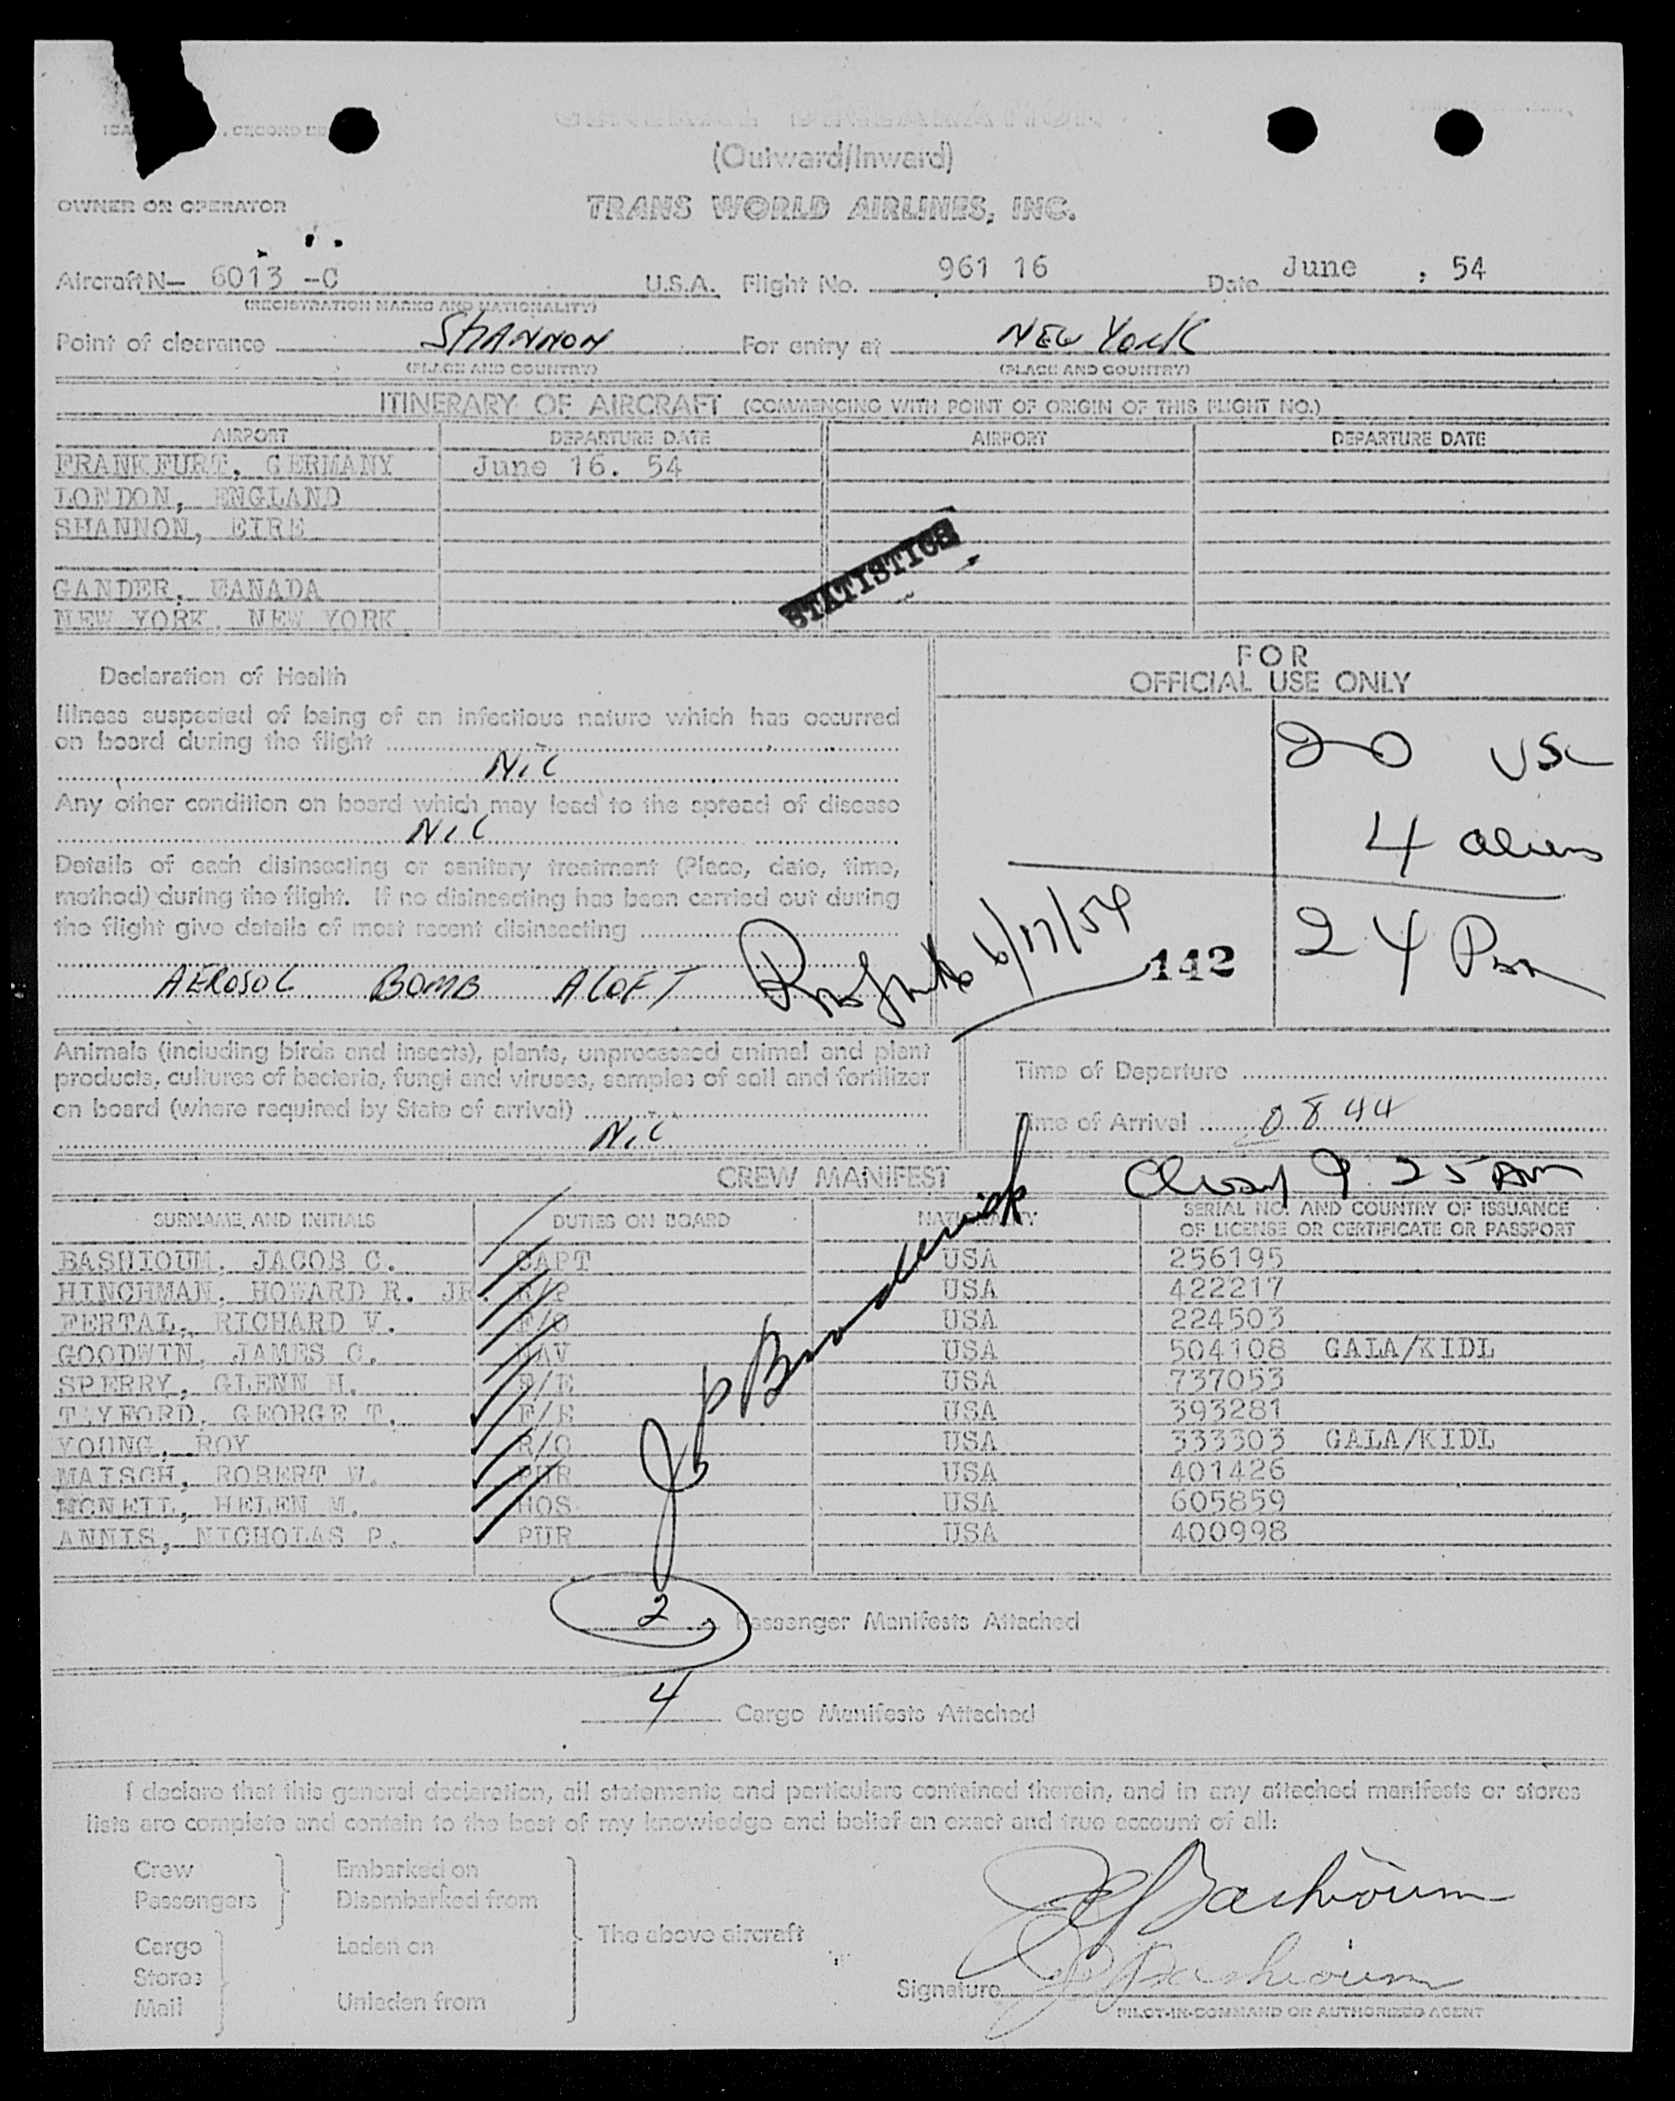 GENERAL DECLARATION
(Outward/Inward)
OWNER OR OPERATOR TRANS WORLD AIRLINES, INC.
Aircraft N— 6013 -C U.S.A. Flight No. 961 16 Date June , 54
(REGISTRATION MARKS AND NATIONALITY)
Point of clearance SHANNON For entry at NEW YORK
(PLACE AND COUNTRY) (PLACE AND COUNTRY)
ITINERARY OF AIRCRAFT (COMMENCING WITH POINT OF ORIGIN OF THIS FLIGHT NO.)
AIRPORT DEPARTURE DATE AIRPORT DEPARTURE DATE
FRANKFURT, GERMANY June 16. 54
LONDON, ENGLAND
SHANNON, EIRE
STATISTICS
GANDER, CANADA
NEW YORK, NEW YORK
FOR
OFFICIAL USE ONLY
Declaration of Health
Illness suspected of being of an infectious nature which has occurred
on board during the flight
NiL
Any other condition on board which may lead to the spread of disease
NiL
Details of each disinsecting or sanitary treatment (Place, date, time,
method) during the flight. If no disinsecting has been carried out during
the flight give details of most recent disinsecting
AEROSOL BOMB ALOFT
20 USC
4 aliens
24 Psn
6/17/54
142
Animals (including birds and insects), plants, unprocessed animal and plant
products, cultures of bacteria, fungi and viruses, samples of soil and fertilizer
on board (where required by State of arrival)
NiL
Time of Departure
Time of Arrival 0844
CREW MANIFEST 9:25 AM
SURNAME, AND INITIALS DUTIES ON BOARD NATIONALITY SERIAL NO. AND COUNTRY OF ISSUANCE
OF LICENSE OR CERTIFICATE OR PASSPORT
BASHIOUM, JACOB C. CAPT USA 256195
HINCHMAN, HOWARD R. JR. USA 422217
FERTAL, RICHARD V. F/O USA 224503
GOODWIN, JAMES C. NAV USA 504108 GALA/KIDL
SPERRY, GLENN H. F/E USA 737053
TWYFORD, GEORGE T. F/E USA 393281
YOUNG, ROY R/O USA 333303 GALA/KIDL
MAISCH, ROBERT W. PUR USA 401426
MCNEIL, HELEN M. HOS USA 605859
ANNIS, NICHOLAS P. PUR USA 400998
2 Passenger Manifests Attached
4 Cargo Manifests Attached
I declare that this general declaration, all statements and particulars contained therein, and in any attached manifests or stores
lists are complete and contain to the best of my knowledge and belief an exact and true account of all:
Crew Embarked on
Passengers Disembarked from
The above aircraft
Cargo Laden on
Stores
Mail Unladen from
JC Bashioum
Signature JC Bashioum
PILOT-IN-COMMAND OR AUTHORIZED AGENT